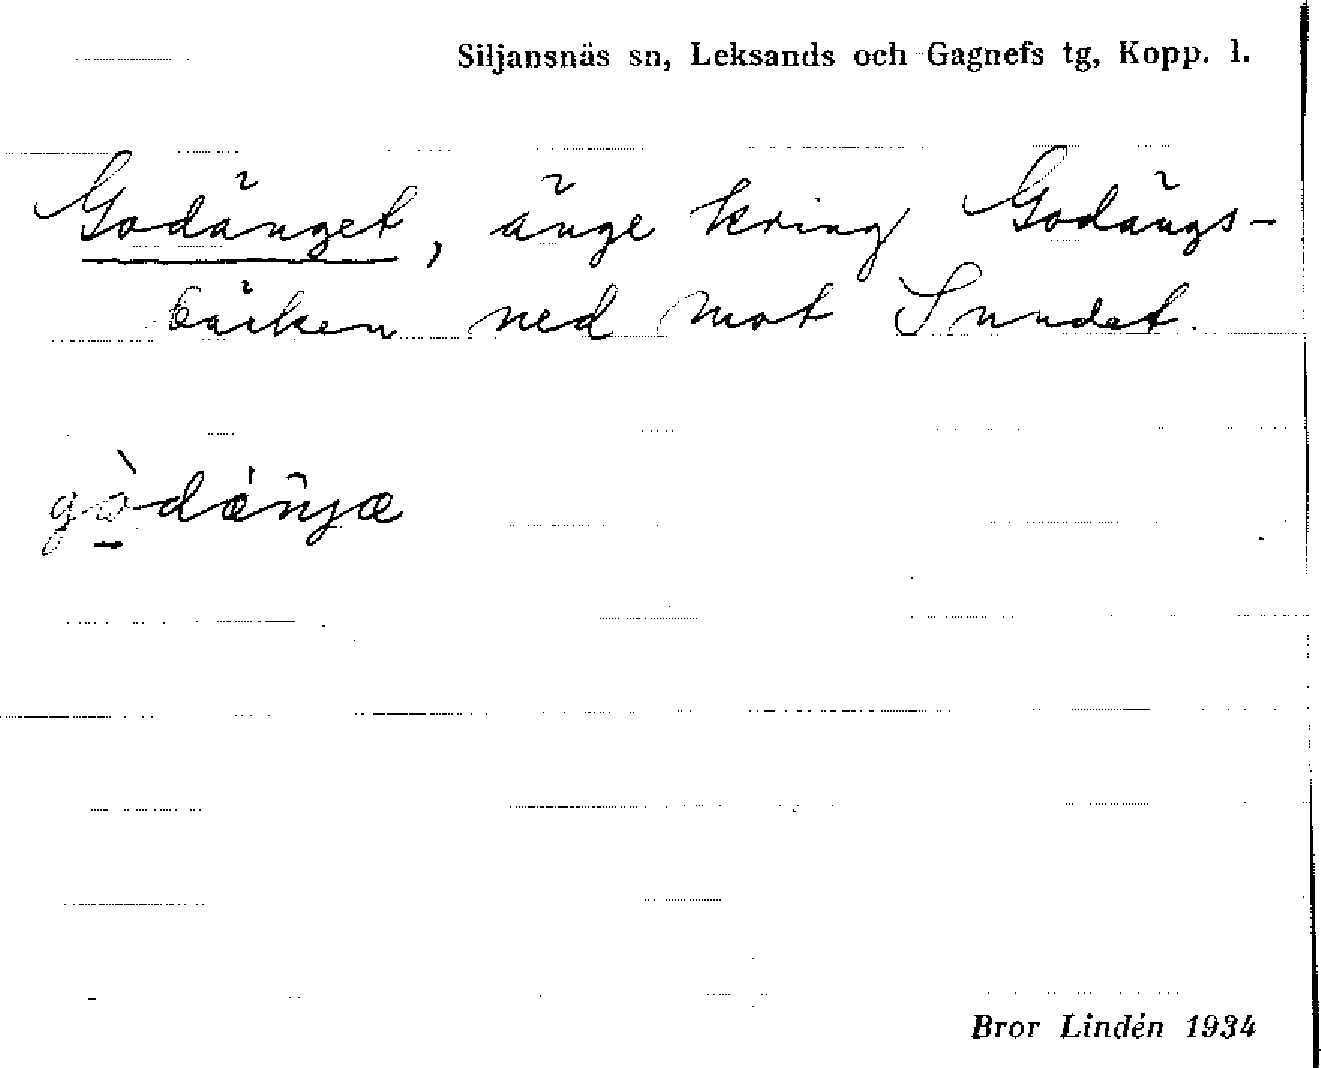 Siljansnäs sn, Leksands och Gagnefs tg, Kopp. l.
Godänget, änge kring Godängs-
bäcken ned mot Sundet.
gòdǽŋjæ
Bror Lindén 1934